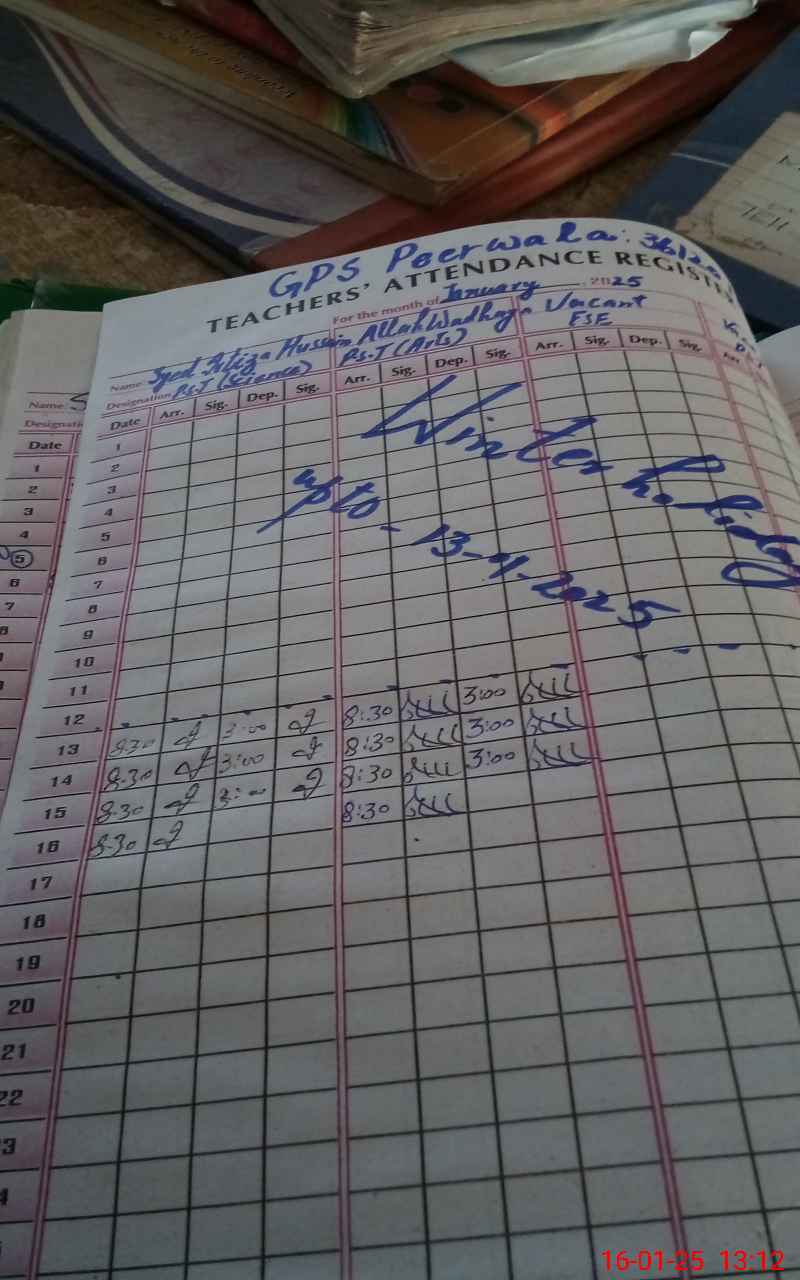 GPS Peerwala: 3612
TEACHERS' ATTENDANCE REGISTE
For the month of January 2025
Name Syed Hussain Allah Wadhaya Vacant
Designation P.S.T (Science) P.S.T (Arts) ESE
Date Arr. Sig. Dep. Sig. Arr. Sig. Dep. Sig. Arr. Sig. Dep. Sig. Arr
1
2
3
4
5
6
7
8
9
10
11
12
13 8:30 3:00 8:30 3:00
14 8:30 3:00 8:30 3:00
15 8:30 3:00 8:30 3:00
16 8:30 8:30
17
18
19
20
21
22
3
4
Winter holiday
upto - 13-01-2025
Name: S
Designati
Date
1
2
3
4
5
6
7
16-01-25 13:12